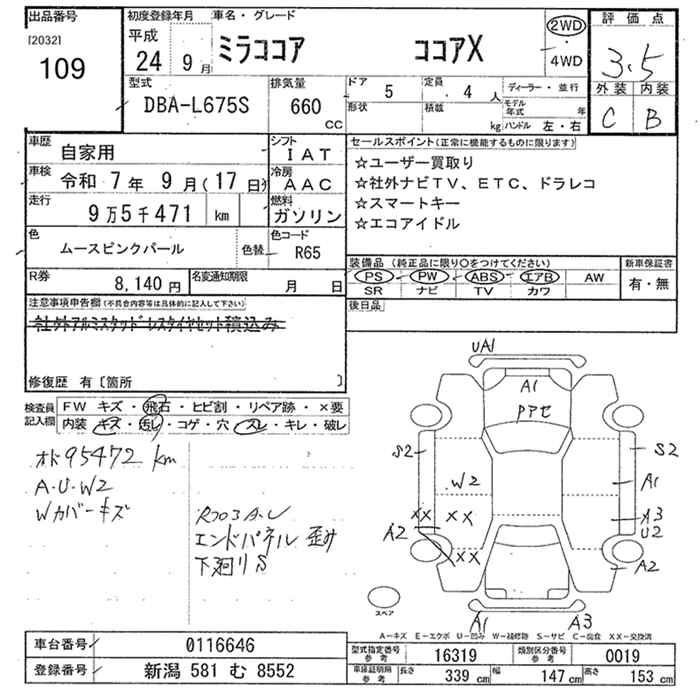 出品番号 初度登録年月 車名・グレード 評価点
[2032] 平成 2WD
109 24 9月 ミラココア ココアX ・ 3.5
4WD
型式 排気量 ドア 5 定員 4人 ディーラー・並行 外装 内装
DBA-L675S 660 CC 形状 積載 kg モデル年式 年 C B
ハンドル 左・右
車歴 自家用 シフト IAT セールスポイント(正常に機能するものに限ります)
車検 令和 7年 9月(17日) 冷房 AAC ☆ユーザー買取り
☆社外ナビTV、ETC、ドラレコ
走行 9万5千471 km 燃料 ガソリン ☆スマートキー
☆エコアイドル
色 ムースピンクパール 色替 色コード R65
装備品(純正品に限り○をつけてください) 新車保証書
R券 8,140円 名変通知期限 月 日 PS PW ABS エアB AW 有・無
SR ナビ TV カワ
注意事項申告欄(不具合内容等は具体的に記入して下さい) 後日品
社外アルミスタッドレスタイヤセット積込み
修復歴 有〔箇所 〕
検査員記入欄 FW キズ・飛石・ヒビ割・リペア跡・×要
内装 キズ・汚レ・コゲ・穴・スレ・キレ・破レ
オド95472km
A・U・W2
Wカバーキズ
エンドパネル歪み
下廻りS
UA1
A1
S2 S2
W2 A1
XX XX A3
A2 U2
XX A2
スペア
A1 A3
A-キズ E-エクボ U-凹み W-補修跡 S-サビ C-腐食 XX-交換済
車台番号 0116646 型式指定番号 参考 16319 類別区分番号 参考 0019
登録番号 新潟 581 む 8552 車庫証明用 参考 長さ 339cm 幅 147cm 高さ 153cm